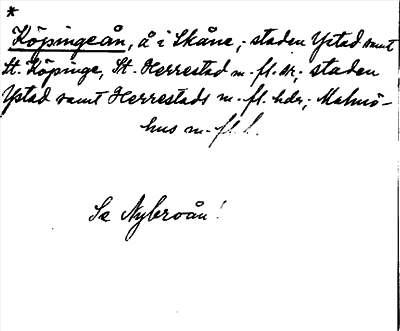 *
Köpingeån, å i Skåne; staden Ystad samt
St. Köpinge, St. Herrestad m. fl. sk; staden
Ystad samt Herrestads m. fl. hdr; Malmö-
hus m. fl. l.
Se Nybroån!